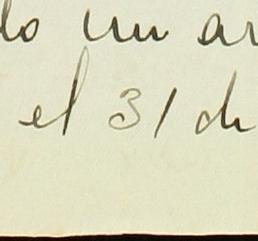 do un ar
el 31 de